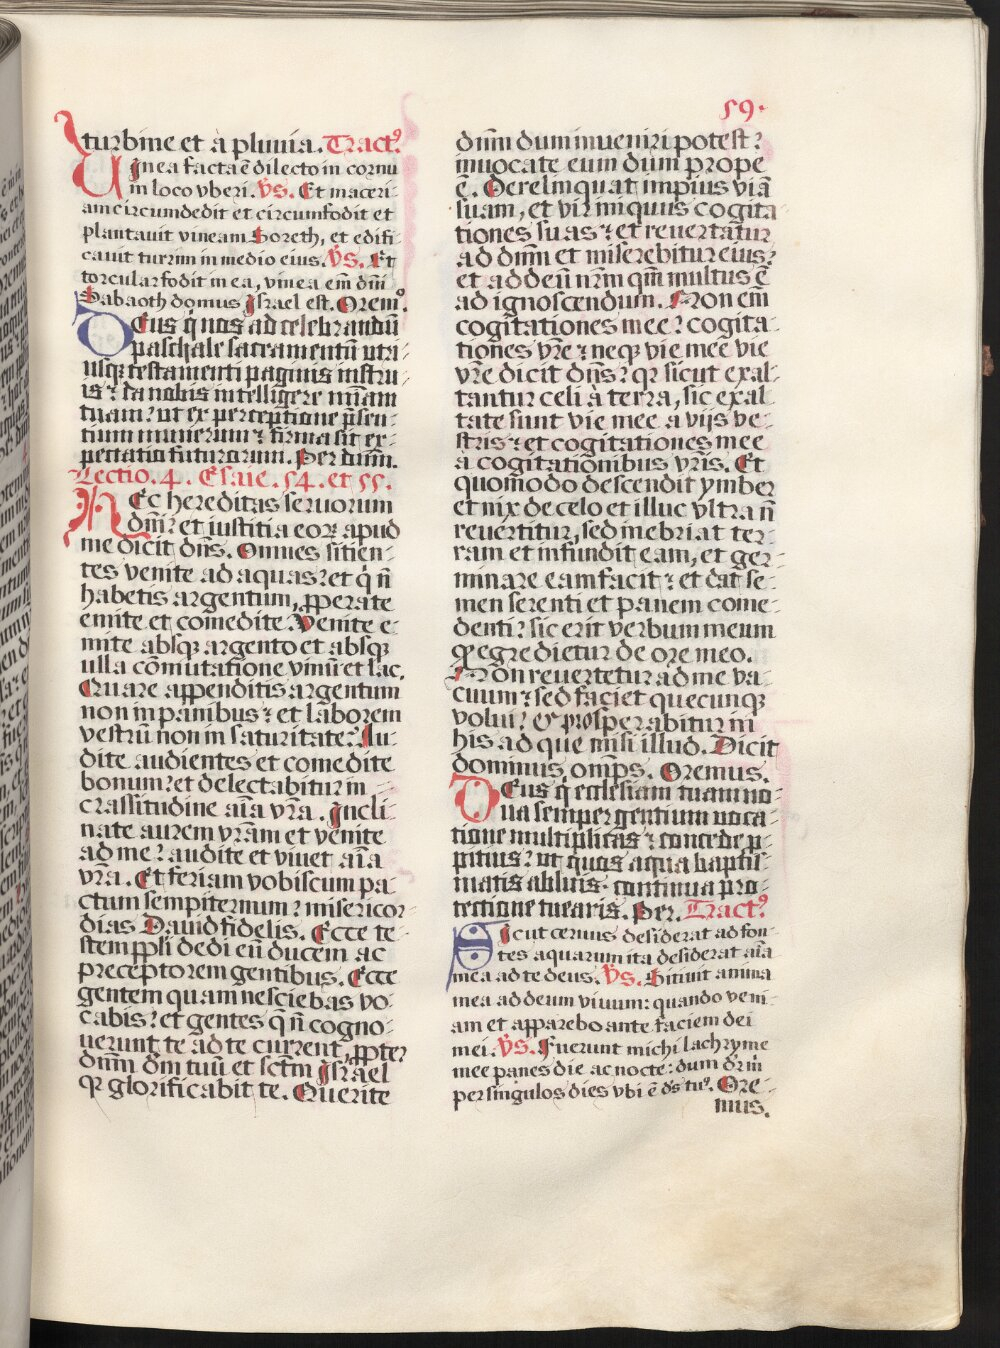 59.
turbine et à pluuia. Tractꝰ
Uinea facta ē dilecto in cornu
in loco vberi. v̄s. Et maceri-
am circumdedit et circumfodit et
plantauit vineam Soreth, et edifi-
cauit turrim in medio eius. v̄s. Et
torcular fodit in ea, vinea em̄ dn̄i
Sabaoth domus Israel est. Oremꝰ.
Deus q̇ nos ad celebrandū
paschale sacramentū utri-
usqꝫ testamenti paginis instru-
is: da nobis intelligere mīam
tuam: ut ex perceptione p̄sen-
tium munerum: firma sit ex-
pectatio futurorum. Per dūm.
Lectio. 4. Esaie. 54. et 55.
Hec hereditas seruorum
dn̄i: et iustitia eoꝝ apud
me dicit dn̄s. Omnes sitien-
tes venite ad aquas: et q̇ n̄
habetis argentum, ꝓperate
emite et comedite. Venite e-
mite absqꝫ argento et absqꝫ
ulla cōmutatione vinū et lac.
Quare appenditis argentum
non in panibus: et laborem
vestrū non in saturitate? Au-
dite audientes et comedite
bonum: et delectabitur in
crassitudine aīa vr̄a. Incli-
nate aurem vr̄am et venite
ad me: audite et viuet aīa
vr̄a. Et feriam vobiscum pa-
ctum sempiternum: misericor-
dias Dauid fidelis. Ecce te-
stem ppl̄i dedi eū ducem ac
preceptorem gentibus. Ecce
gentem quam nesciebas vo-
cabis: et gentes q̄ n̄ cogno-
uerunt te ad te current, ꝓpter
dn̄m dm̄ tuū et sctm̄ Israel
qꝛ glorificabit te. Querite
dn̄m dum inueniri potest:
inuocate eum dum prope
ē. Derelinquat impius viā
suam, et vir iniquus cogita-
tiones suas: et reuertatur
ad dn̄m et miserebitur eius:
et ad deū nr̄m qm̄ multus ē
ad ignoscendum. Non em̄
cogitationes mee: cogita-
tiones vr̄e: neqꝫ vie mee vie
vr̄e dicit dn̄s: qꝛ sicut exal-
tantur celi à terra, sic exal-
tate sunt vie mee a viis ve-
stris: et cogitationes mee
à cogitationibus vr̄is. Et
quomodo descendit ymber
et nix de celo et illuc vltra n̄
reuertitur, sed inebriat ter-
ram et infundit eam, et ger-
minare eam facit: et dat se-
men serenti et panem come-
denti: sic erit verbum meum
qḋ egredietur de ore meo.
Non reuertetur ad me va-
cuum: sed faciet quecunqꝫ
volui: et prosperabitur in
his ad que misi illud. Dicit
dominus omps̄. Oremus.
Deus q̇ ecclesiam tuam no-
ua semper gentium uoca-
tione multiplicas: concede p-
pitius: ut quos aqua baptis-
matis abluis: continua pro-
tectione tuearis. Per. Tractꝰ
Sicut ceruus desiderat ad fon-
tes aquarum ita desiderat aīa
mea ad te deus. v̄s. Sitiuit anima
mea ad deum viuum: quando veni-
am et apparebo ante faciem dei
mei. v̄s. Fuerunt michi lachryme
mee panes die ac nocte: dum dr̄ m̄
per singulos dies vbi ē ds̄ tuꝰ. Ore-
mus.